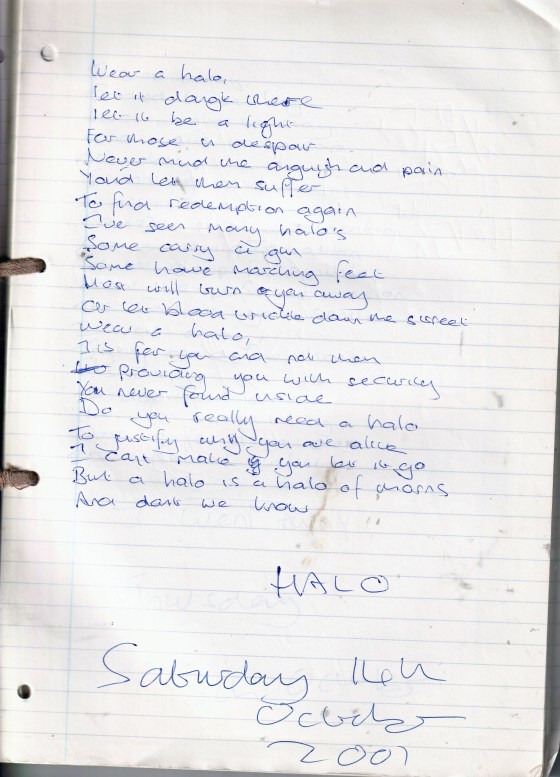 Wear a halo,
let it dangle there
let it be a light
For those in despair
Never mind the anguish and pain
You'd let them suffer
To find redemption again
I've seen many halo's
Some carry a gun
Some have marching feet
Most will turn you away
Or let blood trickle down the street
Wear a halo,
It is for you and not them
providing you with security
You never found inside
Do you really need a halo
To justify why you are alive
I can't make you let it go
But a halo is a halo of thorns
And don't we know
HALO
Saturday 14th
October
2001